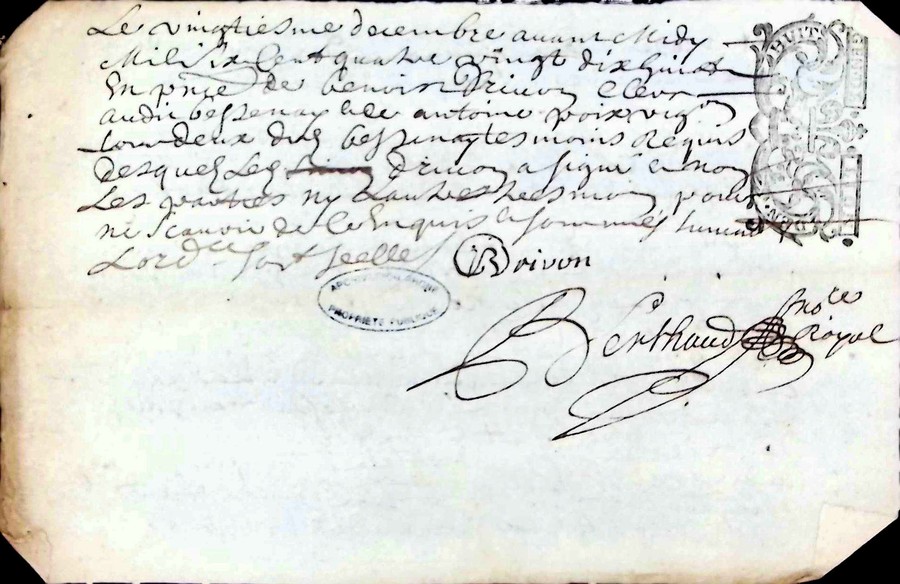 Le vingtiesme decembre avant Midy
Mil Six Cent quatre vingt dix huict
En pnce de benoist Drivon Clerc
audit bessenay et de antoine poix vig.on
tous deux dud. bessenay tesmoins Requis
desquels Led. Drivon a signé et non
Les parties ny Lautre tesmoin pour
ne Scavoir de Ce Enquis et sommés suivant
Lord.ce soit scellé
Drivon
Berthaud no.re
Royal
HUIT
PROPRIETE PUBLIQUE